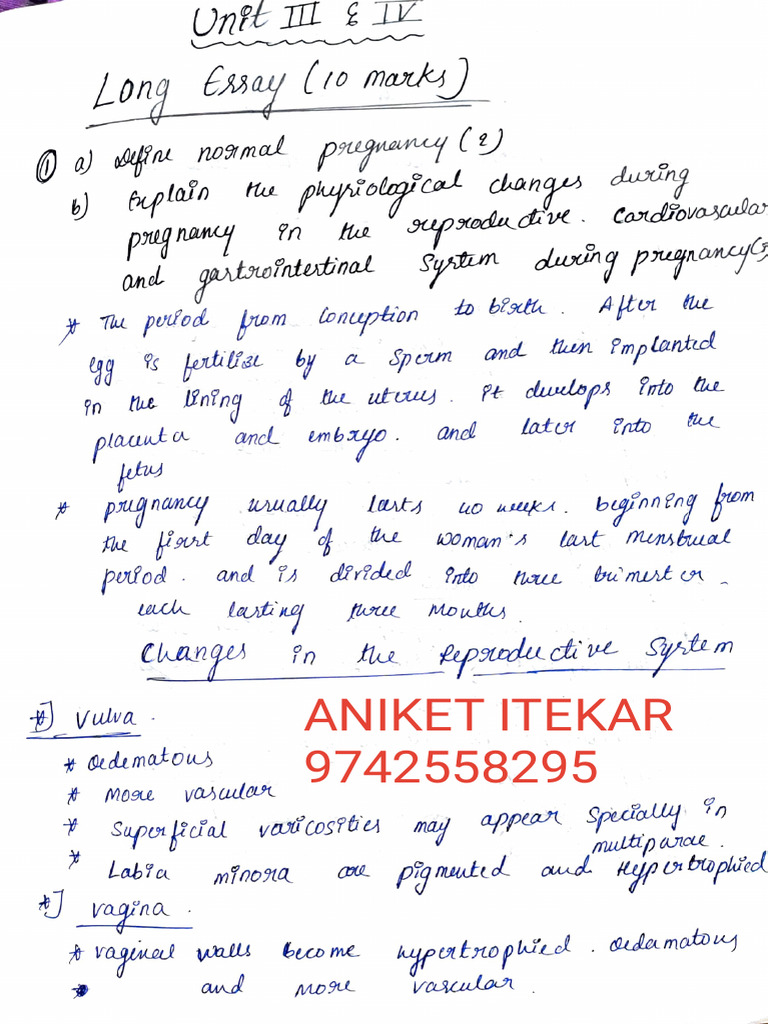 Unit III & IV
Long Essay (10 marks)
① a) Define normal pregnancy (2)
b) Explain the physiological changes during
pregnancy in the reproductive. Cardiovascular
and gastrointestinal System during pregnancy
* The period from Conception to birth. After the
egg is fertilize by a sperm and then implanted
in the lining of the uterus. it develops into the
placenta and embryo. and later into the
fetus
* pregnancy usually lasts 40 weeks. beginning from
the first day of the woman's last menstrual
period. and is divided into three trimester
each lasting three months.
Changes in the Reproductive System
*] Vulva.
ANIKET ITEKAR
9742558295
* Oedematous
* More vascular
* Superficial varicosities may appear Specially in
multiparae.
* Labia minora are pigmented and Hypertrophied
*] vagina.
* vaginal walls become hypertrophied. Oedamatous
and more vascular.